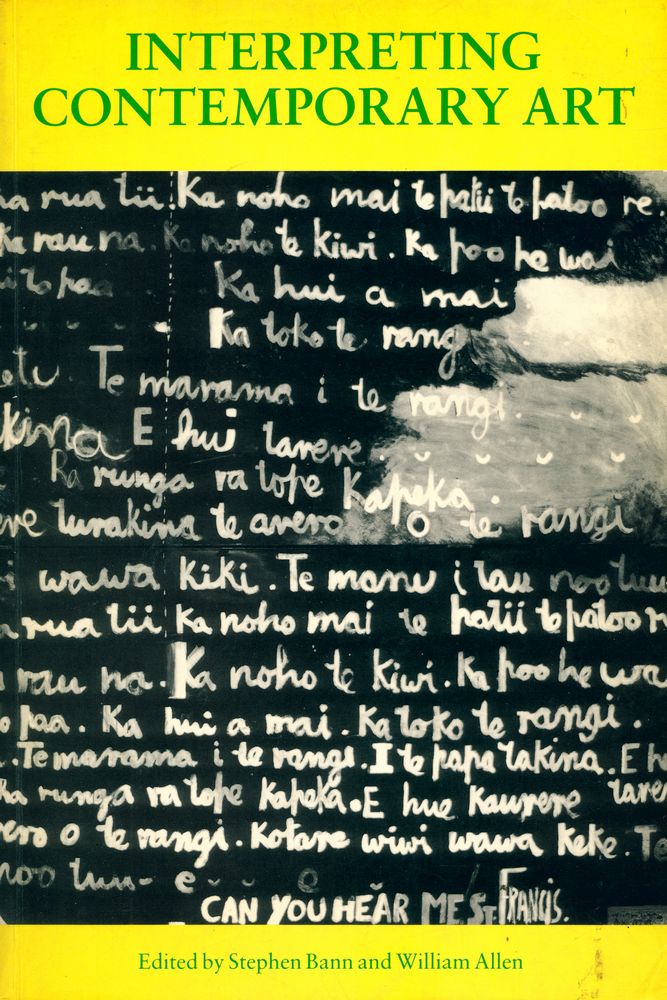 INTERPRETING
CONTEMPORARY ART
a rua tii. Ka noho mai te patii te patoo re
Ka rau na. Ka noho te kiwi. Ka poo he wai
i to paa Ka hui a mai
Ka toko te rang
etu. Te marama i te rangi.
kina E hui tarere
Ra runga ra tope kapeka.
ere turakina te avero O te rangi
i wawa kiki. Te manu i tau noo tuu
a rua tii Ka noho mai te patii te patoo r
rau na. Ka noho te kiwi. Ka poo he wa
o paa. Ka hui a mai. Ka toko te rangi.
. Te marama i te rangi. I te papa takina. E h
Ra runga ra tope kapeka. E hue kaurere tare
rero o te rangi. Kotare wiwi wawa keke. Te
noo tuu- e
CAN YOU HEAR ME St FRANCIS.
Edited by Stephen Bann and William Allen